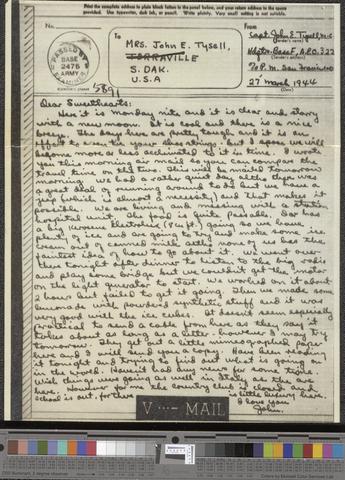 Print the complete address in plain block letters in the panel below, and your return address in the space provided. Use typewriter, dark ink, or pencil. Write plainly. Very small writing is not suitable.
No.
To
From
MRS. JOHN E. TYSELL,
TORRAVILLE
S. DAK.
U.S.A
Capt. John E. Tysell, M.C.
(Sender's name)
Hdqtrs. Base F, A.P.O. 322
(Sender's address)
% P.M. San Francisco
27 March 1944
(Date)
PASSED BY
BASE
2476
ARMY
5891
Dear Sweethearts:
Here it is Monday nite and it is clear and starry
with a new moon. It is cool and there is a nice
breeze. The days here are pretty tough and it is an
effort to even tie your shoe string but I spose we will
become more or less acclimated to it in time. I wrote
you this morning air mail so you can compare the
travel time on the two. This will be mailed tomorrow
morning. We had a rather quiet day altho there was
a great deal of running around to do but we have a
jeep (which is almost a necessity) and that makes it
possible. We are living and messing with a station
hospital unit. The food is quite passable. Doc has
a big kerosene Electrolux (9 cu ft.) going so we have
plenty of ice and are going to try and make some ice
cream out of canned milk altho none of us has the
faintest idea of how to go about it. We went over
there tonight after dinner to listen to the big radio
and play some bridge but we couldn't get the motor
on the light generator to start. We worked on it about
2 hours but failed to get it going. Then we made some
lemonade with powdered synthetic stuff and it was
very good with the ice cubes. It doesn't seem especially
practical to send a cable from here as they say it
takes about as long as a letter - however I may try
tomorrow. They get out a little mimeographed paper
here and I will send you a copy. Have been reading
it tonight and trying to find out what is going on
in the world. Haven't had any news for some time.
Wish things were going as well in Italy as they are
here. However for me the country club is closed and
school is out, for there is little luxury here.
I love you
John.
V ···— MAIL